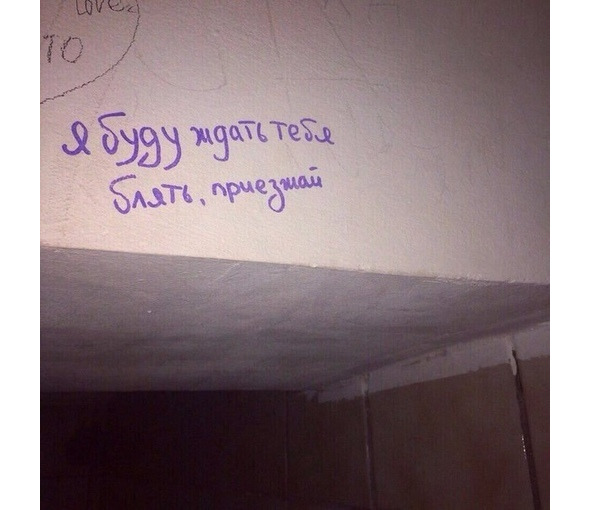 Love
TO
Я буду ждать тебя
блять, приезжай